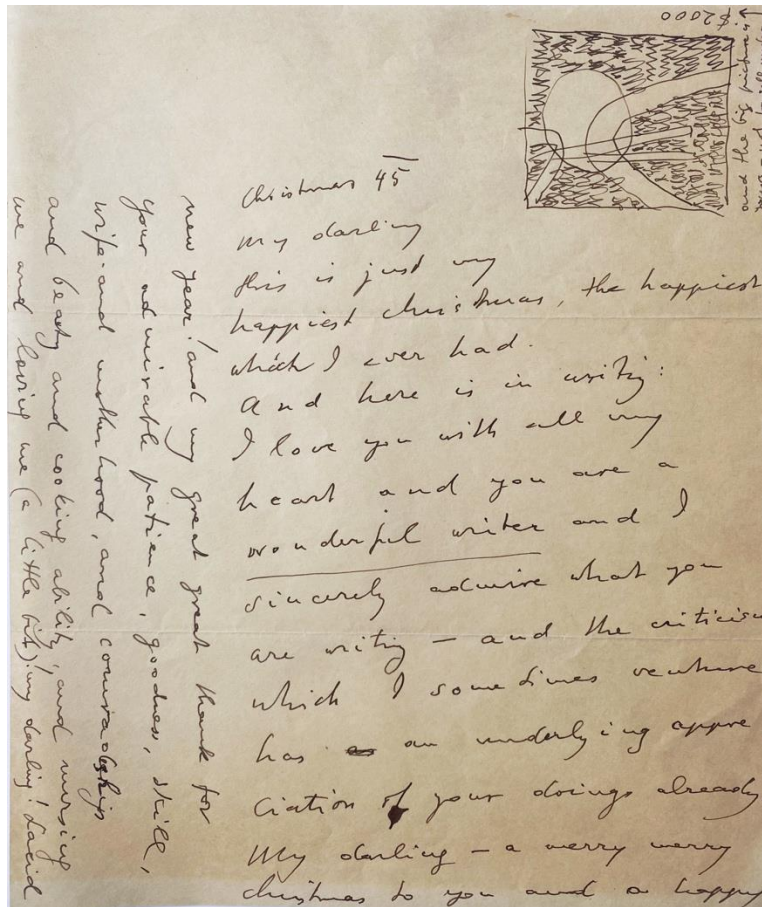 Christmas 45
My darling
this is just my
happiest christmas, the happiest
which I ever had.
And here is in writig:
I love you with all my
heart and you are a
wonderful writer and I
sincerely admire what you
are writig – and the criticism
which I sometimes venture
has an underlying appre
ciation of your doings already
My darling – a merry merry
christmas to you and a happy
new year! and my great great thank for
your admirable patience, goodness, skill,
wife- and motherhood, and comradeship
and beauty and cooking ability, and nursing
me and loving me (a little bit) my darling!
$2000
and the big picture